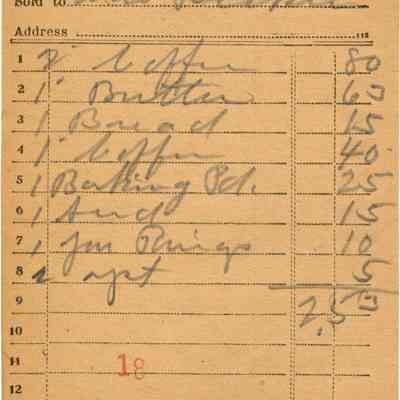 Sold to
Address
1 2 Coffee 80
2 1 Butter 65
3 1 Bread 15
4 1 Coffee 40
5 1 Baking Pd. 25
6 1 15
7 1 Jar Rings 10
8 5
9 2.55
10
11 18
12